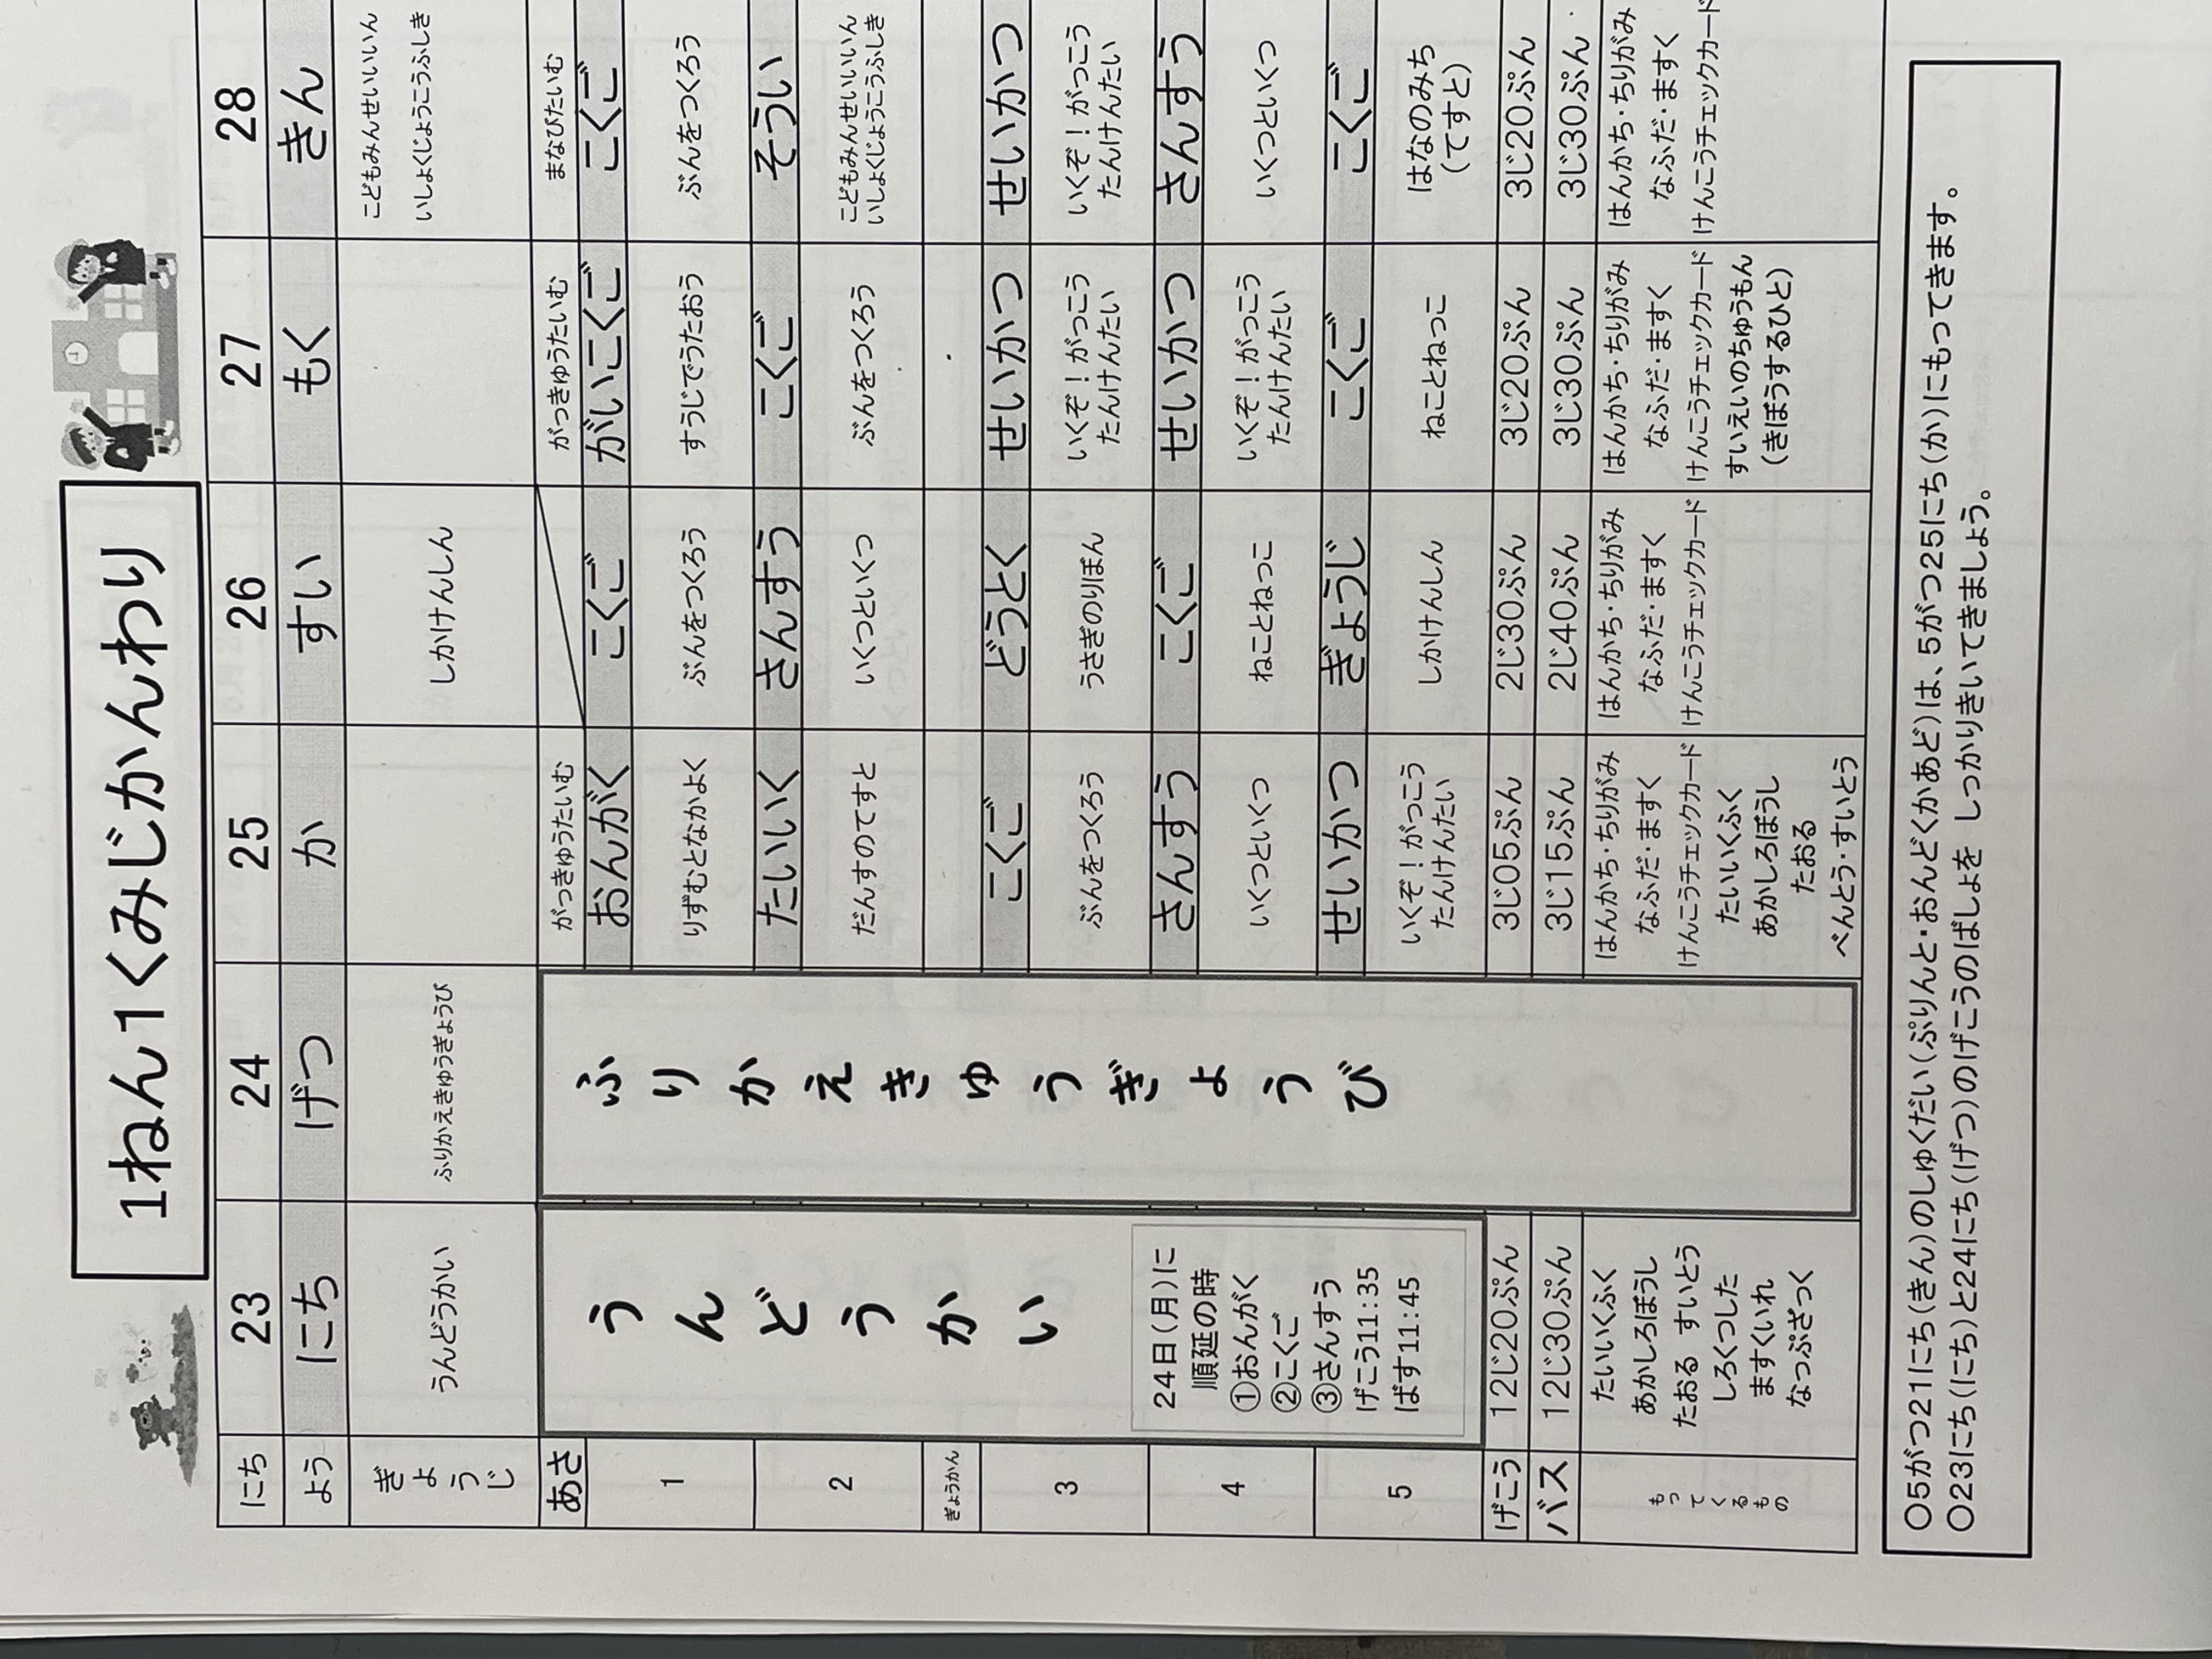 1ねん1くみじかんわり
にち 23 24 25 26 27 28
よう にち げつ か すい もく きん
ぎょうじ うんどうかい ふりかえきゅうぎょうび しかけんしん こどもみんせいいいん
いしょくじょうこうふしき
あさ がっきゅうたいむ がっきゅうたいむ まなびたいむ
1 おんがく こくご がいこくご こくご
りずむとなかよく ぶんをつくろう すうじでうたおう ぶんをつくろう
2 たいいく さんすう こくご そうい
だんすのてすと いくつといくつ ぶんをつくろう こどもみんせいいいん
いしょくじょうこうふしき
ぎょうかん
3 こくご どうとく せいかつ せいかつ
ぶんをつくろう うさぎのりぼん いくぞ！がっこう いくぞ！がっこう
たんけんたい たんけんたい
4 さんすう こくご せいかつ さんすう
いくつといくつ ねことねっこ いくぞ！がっこう いくつといくつ
たんけんたい
5 せいかつ ぎょうじ こくご こくご
いくぞ！がっこう しかけんしん ねことねっこ はなのみち
たんけんたい (てすと)
うんどうかい
24日(月)に
順延の時
①おんがく
②こくご
③さんすう
げこう11:35
ばす11:45
ふりかえきゅうぎょうび
げこう 12じ20ぷん 3じ05ぷん 2じ30ぷん 3じ20ぷん 3じ20ぷん
バス 12じ30ぷん 3じ15ぷん 2じ40ぷん 3じ30ぷん 3じ30ぷん
もってくるもの
たいいくふく
あかしろぼうし
たおる すいとう
しろくつした
ますくいれ
なっぷざっく
はんかち・ちりがみ
なふだ・ますく
けんこうチェックカード
たいいくふく
あかしろぼうし
たおる
べんとう・すいとう
はんかち・ちりがみ
なふだ・ますく
けんこうチェックカード
はんかち・ちりがみ
なふだ・ますく
けんこうチェックカード
すいえいのちゅうもん
(きぼうするひと)
はんかち・ちりがみ
なふだ・ますく
けんこうチェックカード
○5がつ21にち(きん)のしゅくだい(ぷりんと・おんどくかあど)は、5がつ25にち(か)にもってきます。
○23にち(にち)と24にち(げつ)のげこうのばしょを しっかりきいてきましょう。